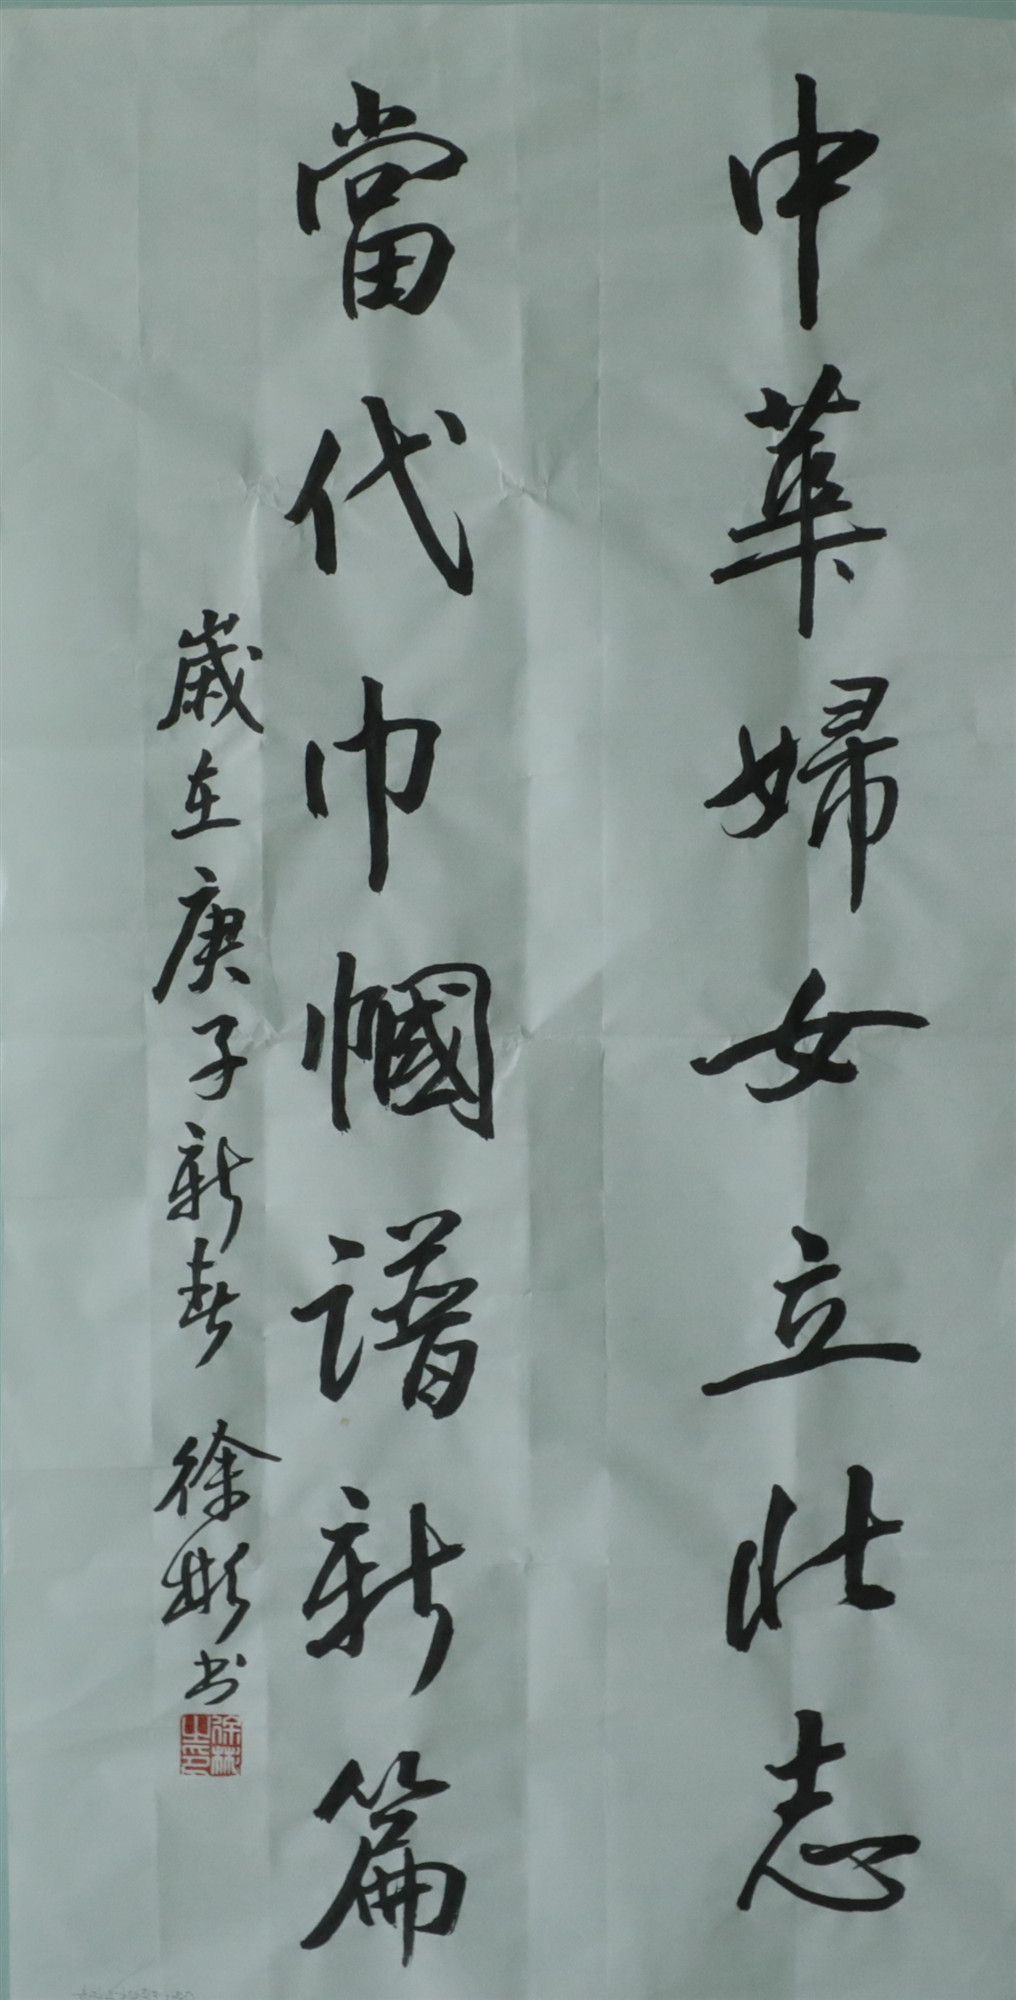 中華婦女立壯志
當代巾幗譜新篇
歲在庚子新春 徐彬书
徐彬之印